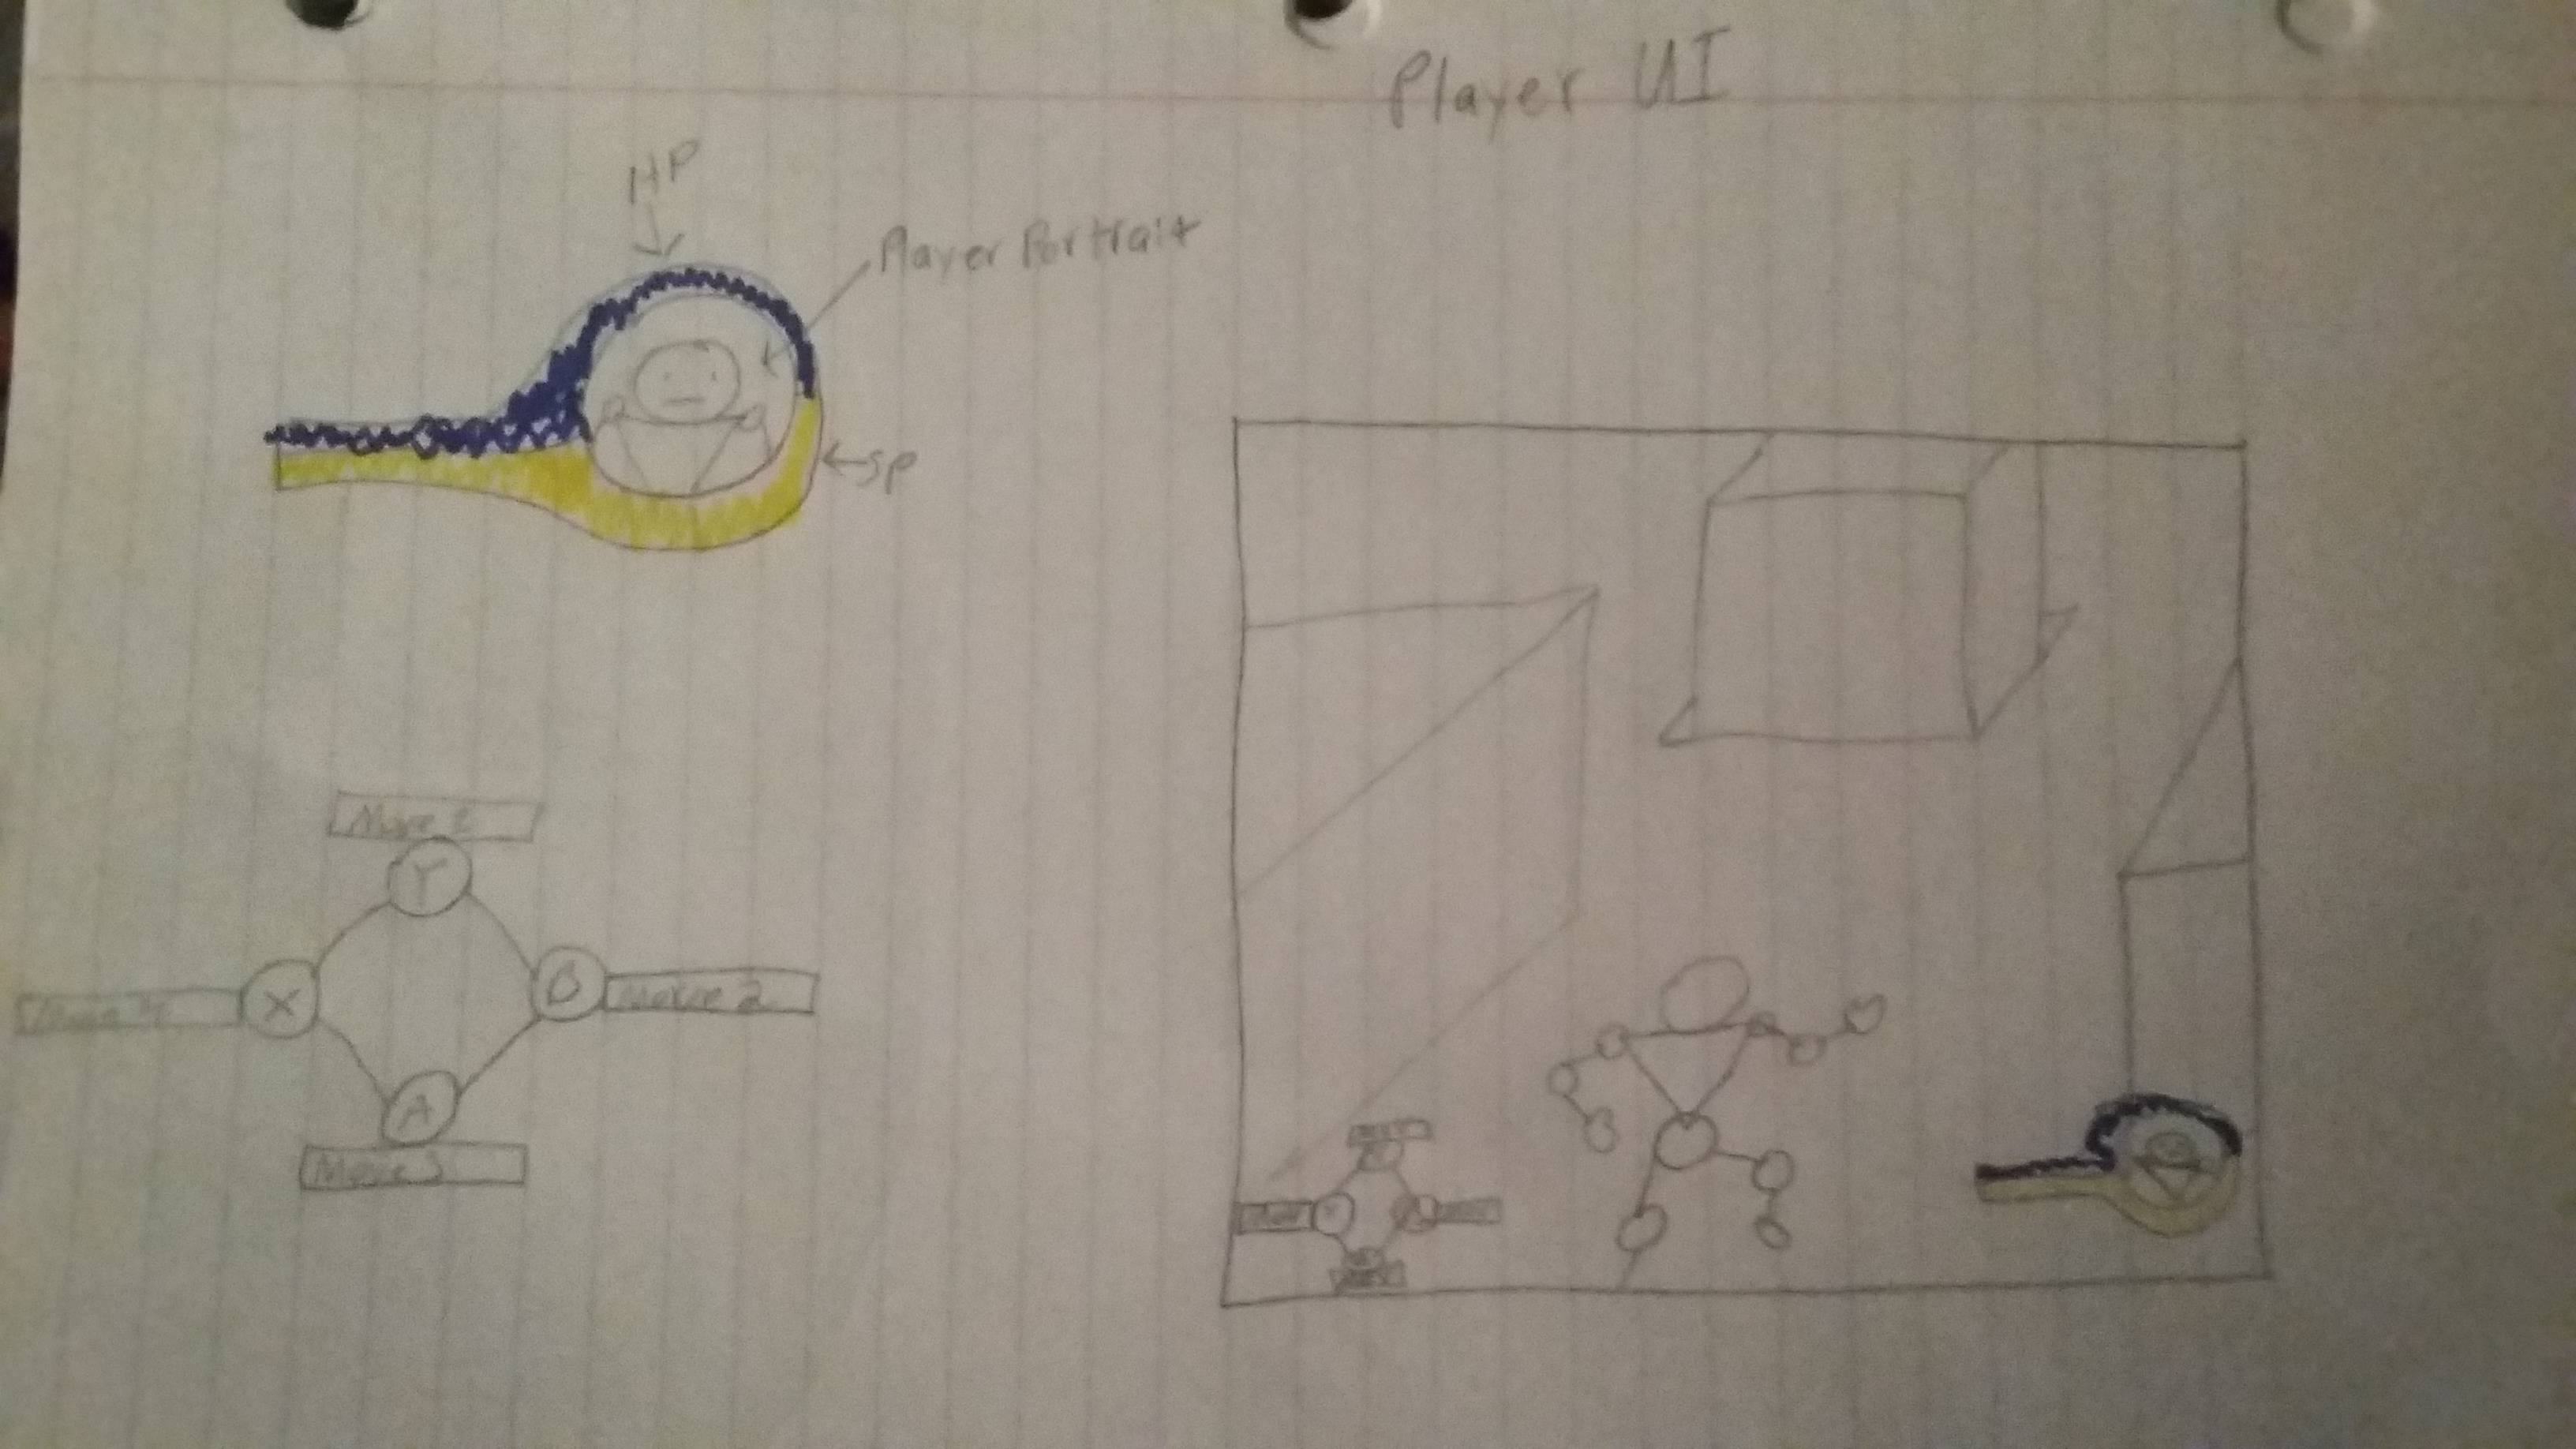 Player UI
HP
Player Portrait
SP
Move 1
Y
X
B
Move 2
A
Move 3